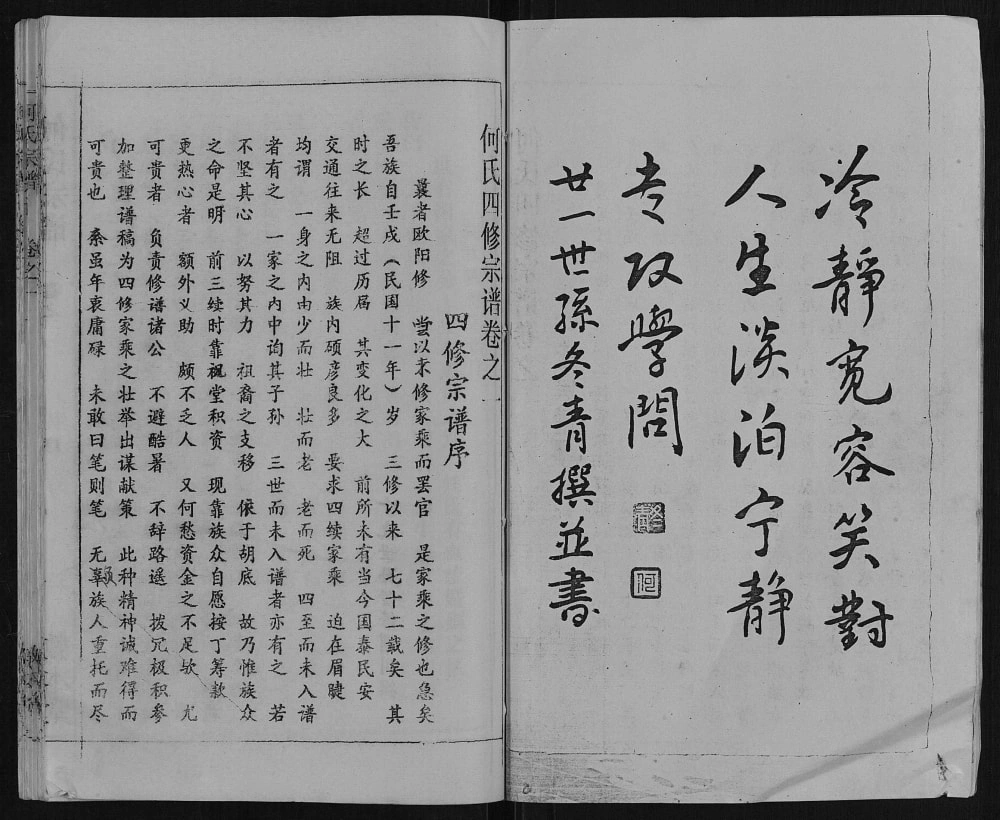 冷靜宽容笑對
人生淡泊宁静
专攻學問
廿一世孫冬青撰並書
何
何氏四修宗谱卷之一
四修宗谱序
曩者欧阳修 尝以未修家乘而罢官 是家乘之修也急矣
吾族自壬戌（民国十一年）岁 三修以来 七十二载矣 其
时之长 超过历届 其变化之大 前所未有当今国泰民安
交通往来无阻 族内硕彦良多 要求四续家乘 迫在眉睫
均谓 一身之内由少而壮 壮而老 老而死 四至而未入谱
者有之 一家之内中询其子孙 三世而未入谱者亦有之 若
不坚其心 以努其力 祖裔之支移 依于胡底 故乃惟族众
之命是明 前三续时靠祝堂积资 现靠族众自愿按丁筹款
更热心者 额外义助 颇不乏人 又何愁资金之不足欤 尤
可贵者 负责修谱诸公 不避酷暑 不辞路遥 拨冗极积参
加整理谱稿为四修家乘之壮举出谋献策 此种精神诚难得而
可贵也 桼虽年衷庸碌 未敢曰笔则笔 无辜族人重托而尽
何氏宗谱
卷之一